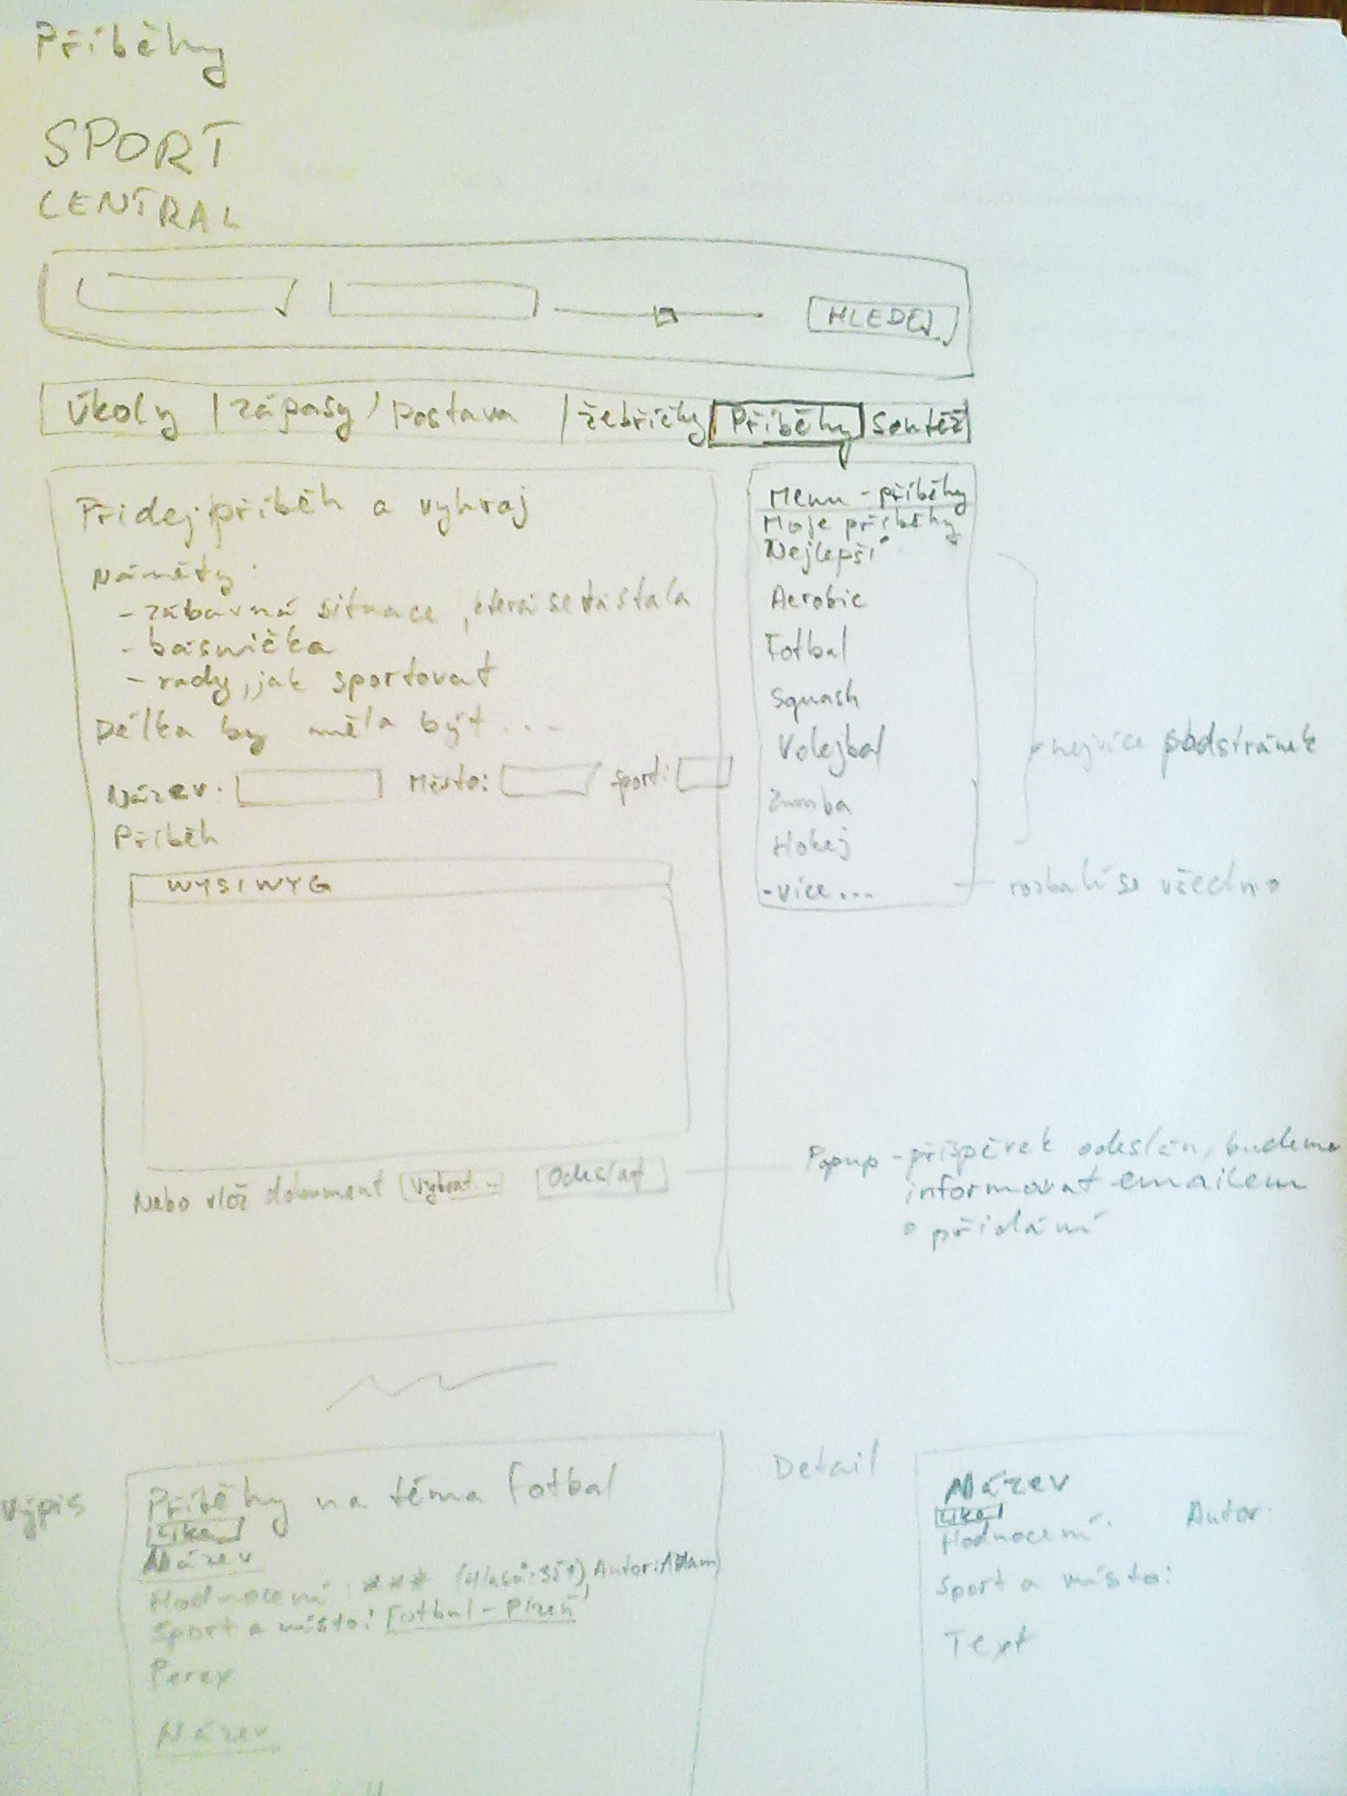 Příběhy
SPORT
CENTRAL
HLEDEJ
Úkoly | zápasy | Postava | žebříčky | Příběhy | Soutěž
Přidej příběh a vyhraj
Náměty:
- zábavná situace, která se ti stala
- básnička
- rady, jak sportovat
Délka by měla být ...
Název: Město: Sport:
Příběh
WYSIWYG
Nebo vlož dokument Vybrat... Odeslat
Menu - příběhy
Moje příběhy
Nejlepší
Aerobic
Fotbal
Squash
Volejbal
Zumba
Hokej
- více...
nejvíce podstránek
rozbalí se všechno
Popup - příspěvek odeslán, budeme
informovat emailem
o přidání
Výpis
Příběhy na téma fotbal
Like
Název
Hodnocení: *** Autor: Adam
Sport a místo: Fotbal - Plzeň
Perex
Název
Detail
Název
Like
Hodnocení: Autor:
Sport a místo:
Text